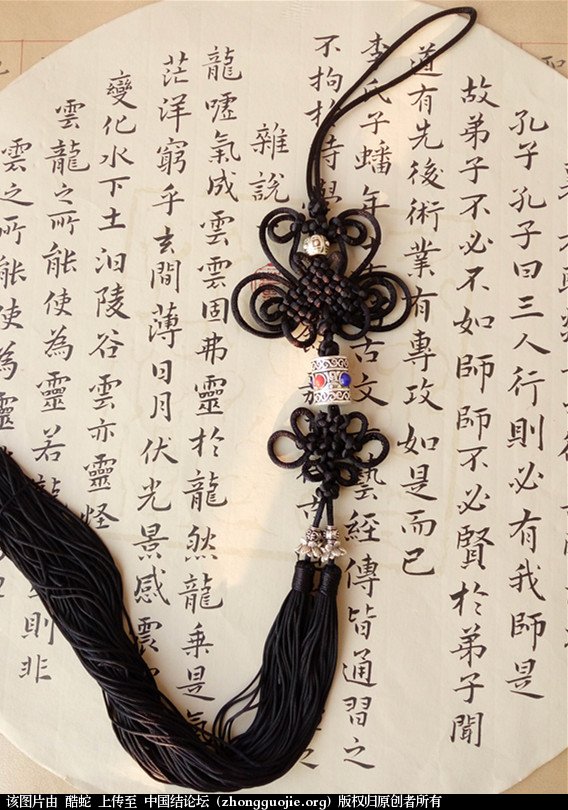 孔子孔子曰三人行則必有我師是
故弟子不必不如師師不必賢於弟子聞
道有先後術業有專攻如是而已
李氏子蟠年古文藝經傳皆通習之
不拘於時學
雜說
龍噓氣成雲雲固弗靈於龍然龍乘是氣
茫洋窮乎玄間薄日月伏光景感震
變化水下土汩陵谷雲亦靈怪
雲龍之所能使為靈若龍則非
雲之所能使為靈
该图片由 酷蛇 上传至 中国结论坛 (zhongguojie.org) 版权归原创者所有